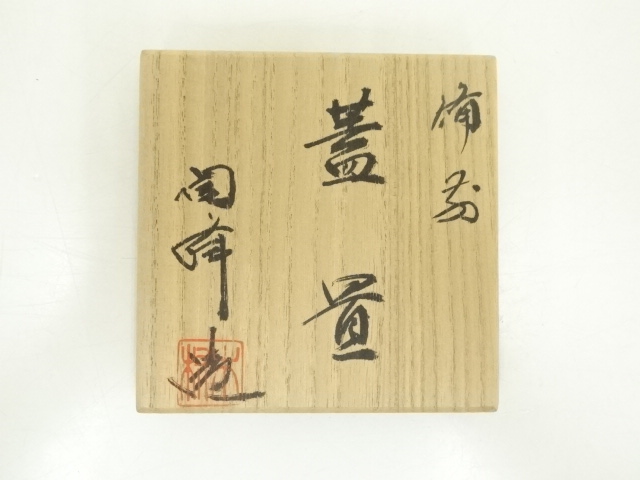 備前
蓋置
陶峰造